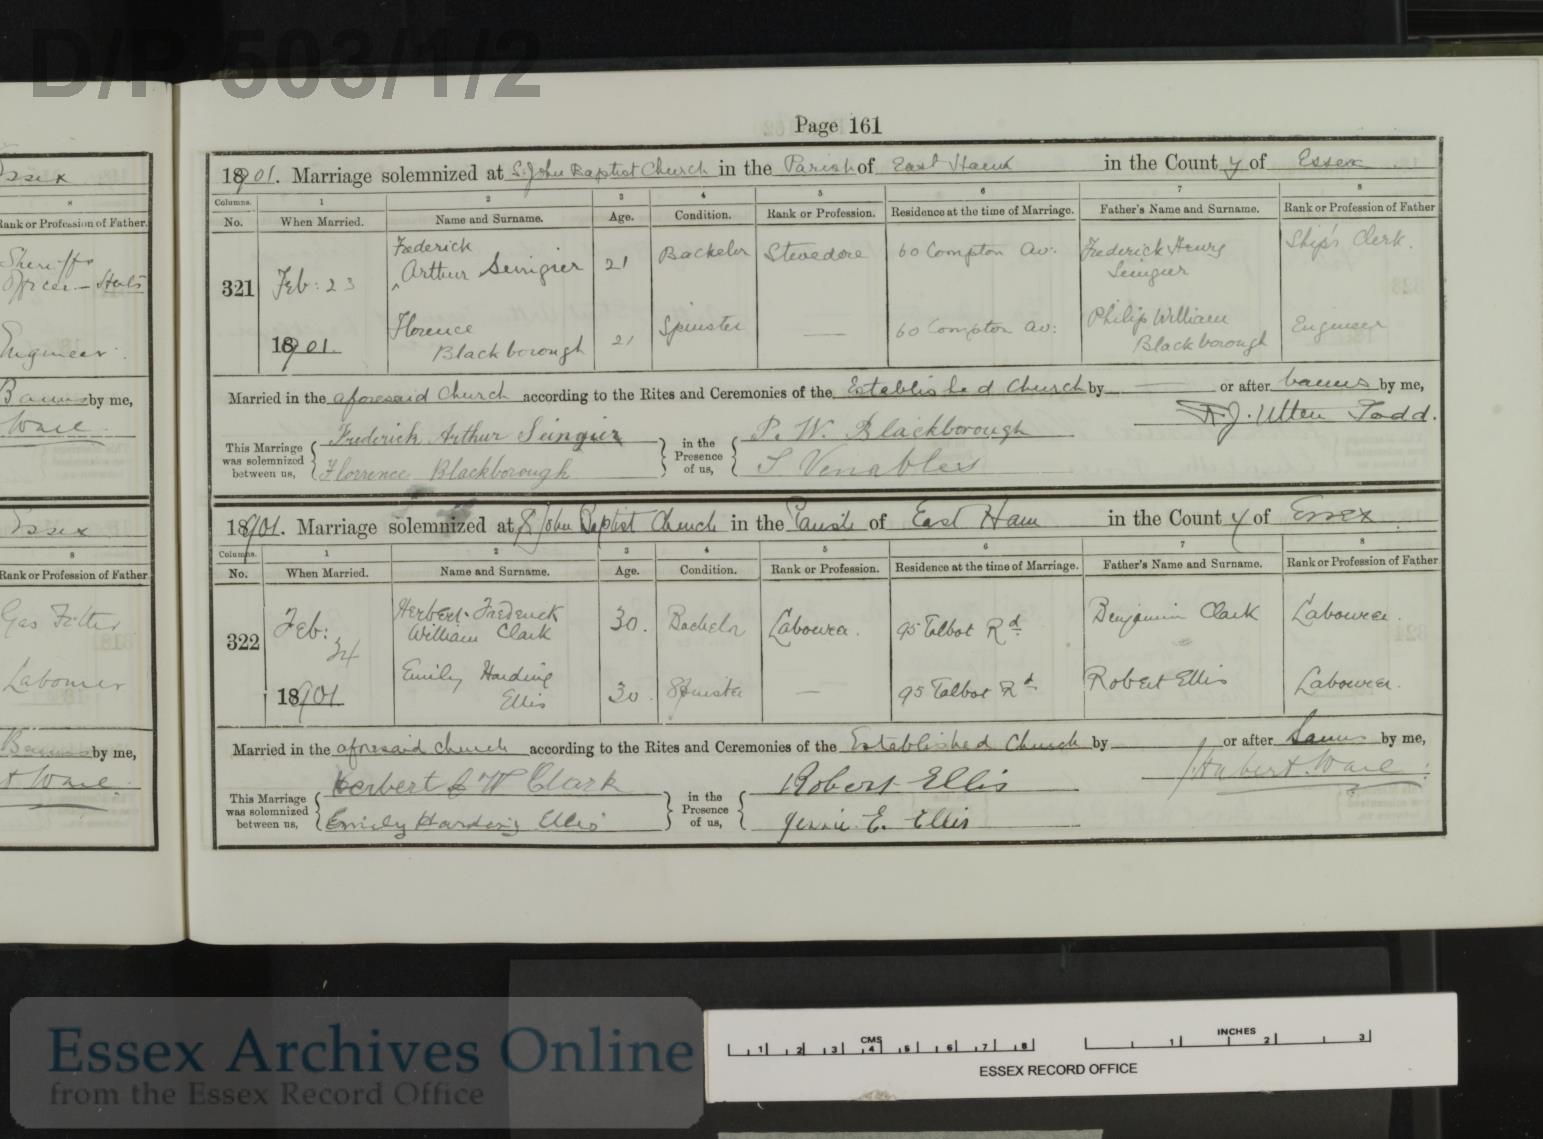 D/P 503/1/2
Page 161
1901. Marriage solemnized at St. John Baptist Church in the Parish of East Ham in the County of Essex
Columns. 1 2 3 4 5 6 7 8
No. When Married. Name and Surname. Age. Condition. Rank or Profession. Residence at the time of Marriage. Father's Name and Surname. Rank or Profession of Father
321 Feb: 23 1901. Frederick Arthur Seingier 21 Bachelor Stevedore 60 Compton Av: Frederick Henry Seingier Ship's Clerk.
Florence Blackborough 21 Spinster — 60 Compton Av: Philip William Blackborough Engineer
Married in the aforesaid Church according to the Rites and Ceremonies of the Established Church by — or after banns by me,
J. Utten Todd.
This Marriage was solemnized between us,
Frederick Arthur Seingier
Florrence Blackborough
in the Presence of us,
P. W. Blackborough
S Venables
1901. Marriage solemnized at St John Baptist Church in the Parish of East Ham in the County of Essex
Columns. 1 2 3 4 5 6 7 8
No. When Married. Name and Surname. Age. Condition. Rank or Profession. Residence at the time of Marriage. Father's Name and Surname. Rank or Profession of Father
322 Feb: 24 1901 Herbert Frederick William Clark 30. Bachelor Labourer. 95 Talbot Rd Benjamin Clark Labourer.
Emily Harding Ellis 30. Spinster — 95 Talbot Rd Robert Ellis Labourer.
Married in the aforesaid church according to the Rites and Ceremonies of the Established Church by — or after Banns by me,
Hubert. Ware
This Marriage was solemnized between us,
Herbert F W Clark
Emily Harding Ellis
in the Presence of us,
Robert Ellis
Jennie E. Ellis
Essex
8
Rank or Profession of Father.
Sheriff's
Officer — Herts
Engineer.
Banns by me,
Ware.
Essex
8
Rank or Profession of Father
Gas Fitter
Labourer
Banns by me,
Ware.
Essex Archives Online
from the Essex Record Office
CMS
1 2 3 4 5 6 7 8
INCHES
1 2 3
ESSEX RECORD OFFICE